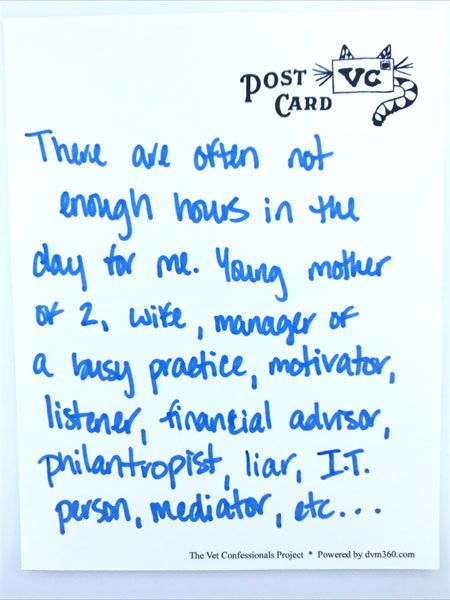 POST
CARD
VC
There are often not
enough hours in the
day for me. Young mother
of 2, wife, manager of
a busy practice, motivator,
listener, financial advisor,
philantropist, liar, I.T.
person, mediator, etc...
The Vet Confessionals Project * Powered by dvm360.com